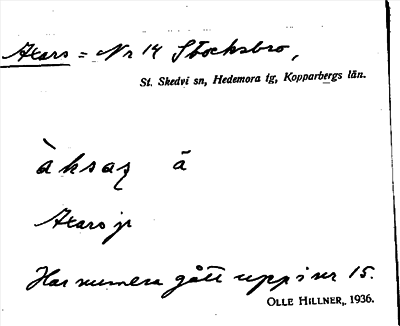 Axars = Nr 14 Stocksbro,
St. Skedvi sn, Hedemora tg, Kopparbergs län.
àksaz ā
Axars jr
Har numera gått upp i nr 15.
OLLE HILLNER, 1936.